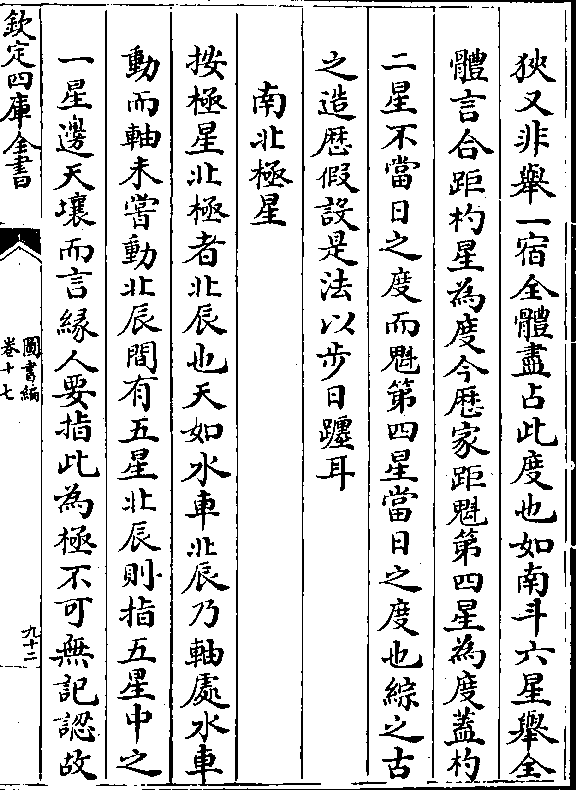 狹又非舉一宿全體盡占此度也如南斗六星舉全
體言合距杓星為度今厯家距魁第四星為度蓋杓
二星不當日之度而魁第四星當日之度也綜之古
之造厯假設是法以步日躔耳
南北極星
按極星北極者北辰也天如水車北辰乃軸處水車
動而軸未嘗動北辰間有五星北辰則指五星中之
一星邊天壤而言縁人要指此為極不可無記認故
欽定四庫全書
圖書編
卷十七
九十二